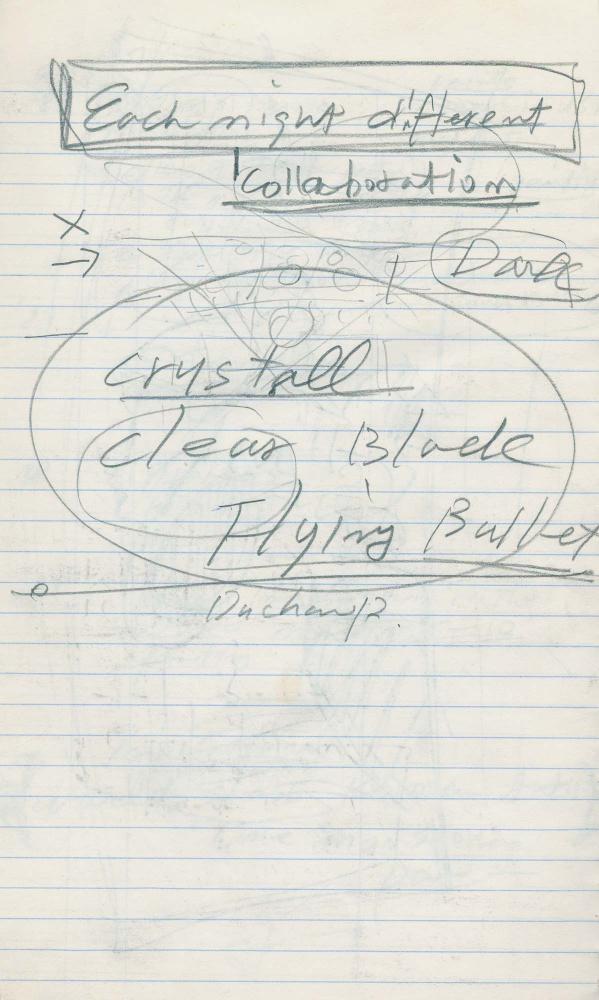 Each night different
Collaboration
X
→ Dark
crystall
clear Blade
Flying Bullet
Duchamp.